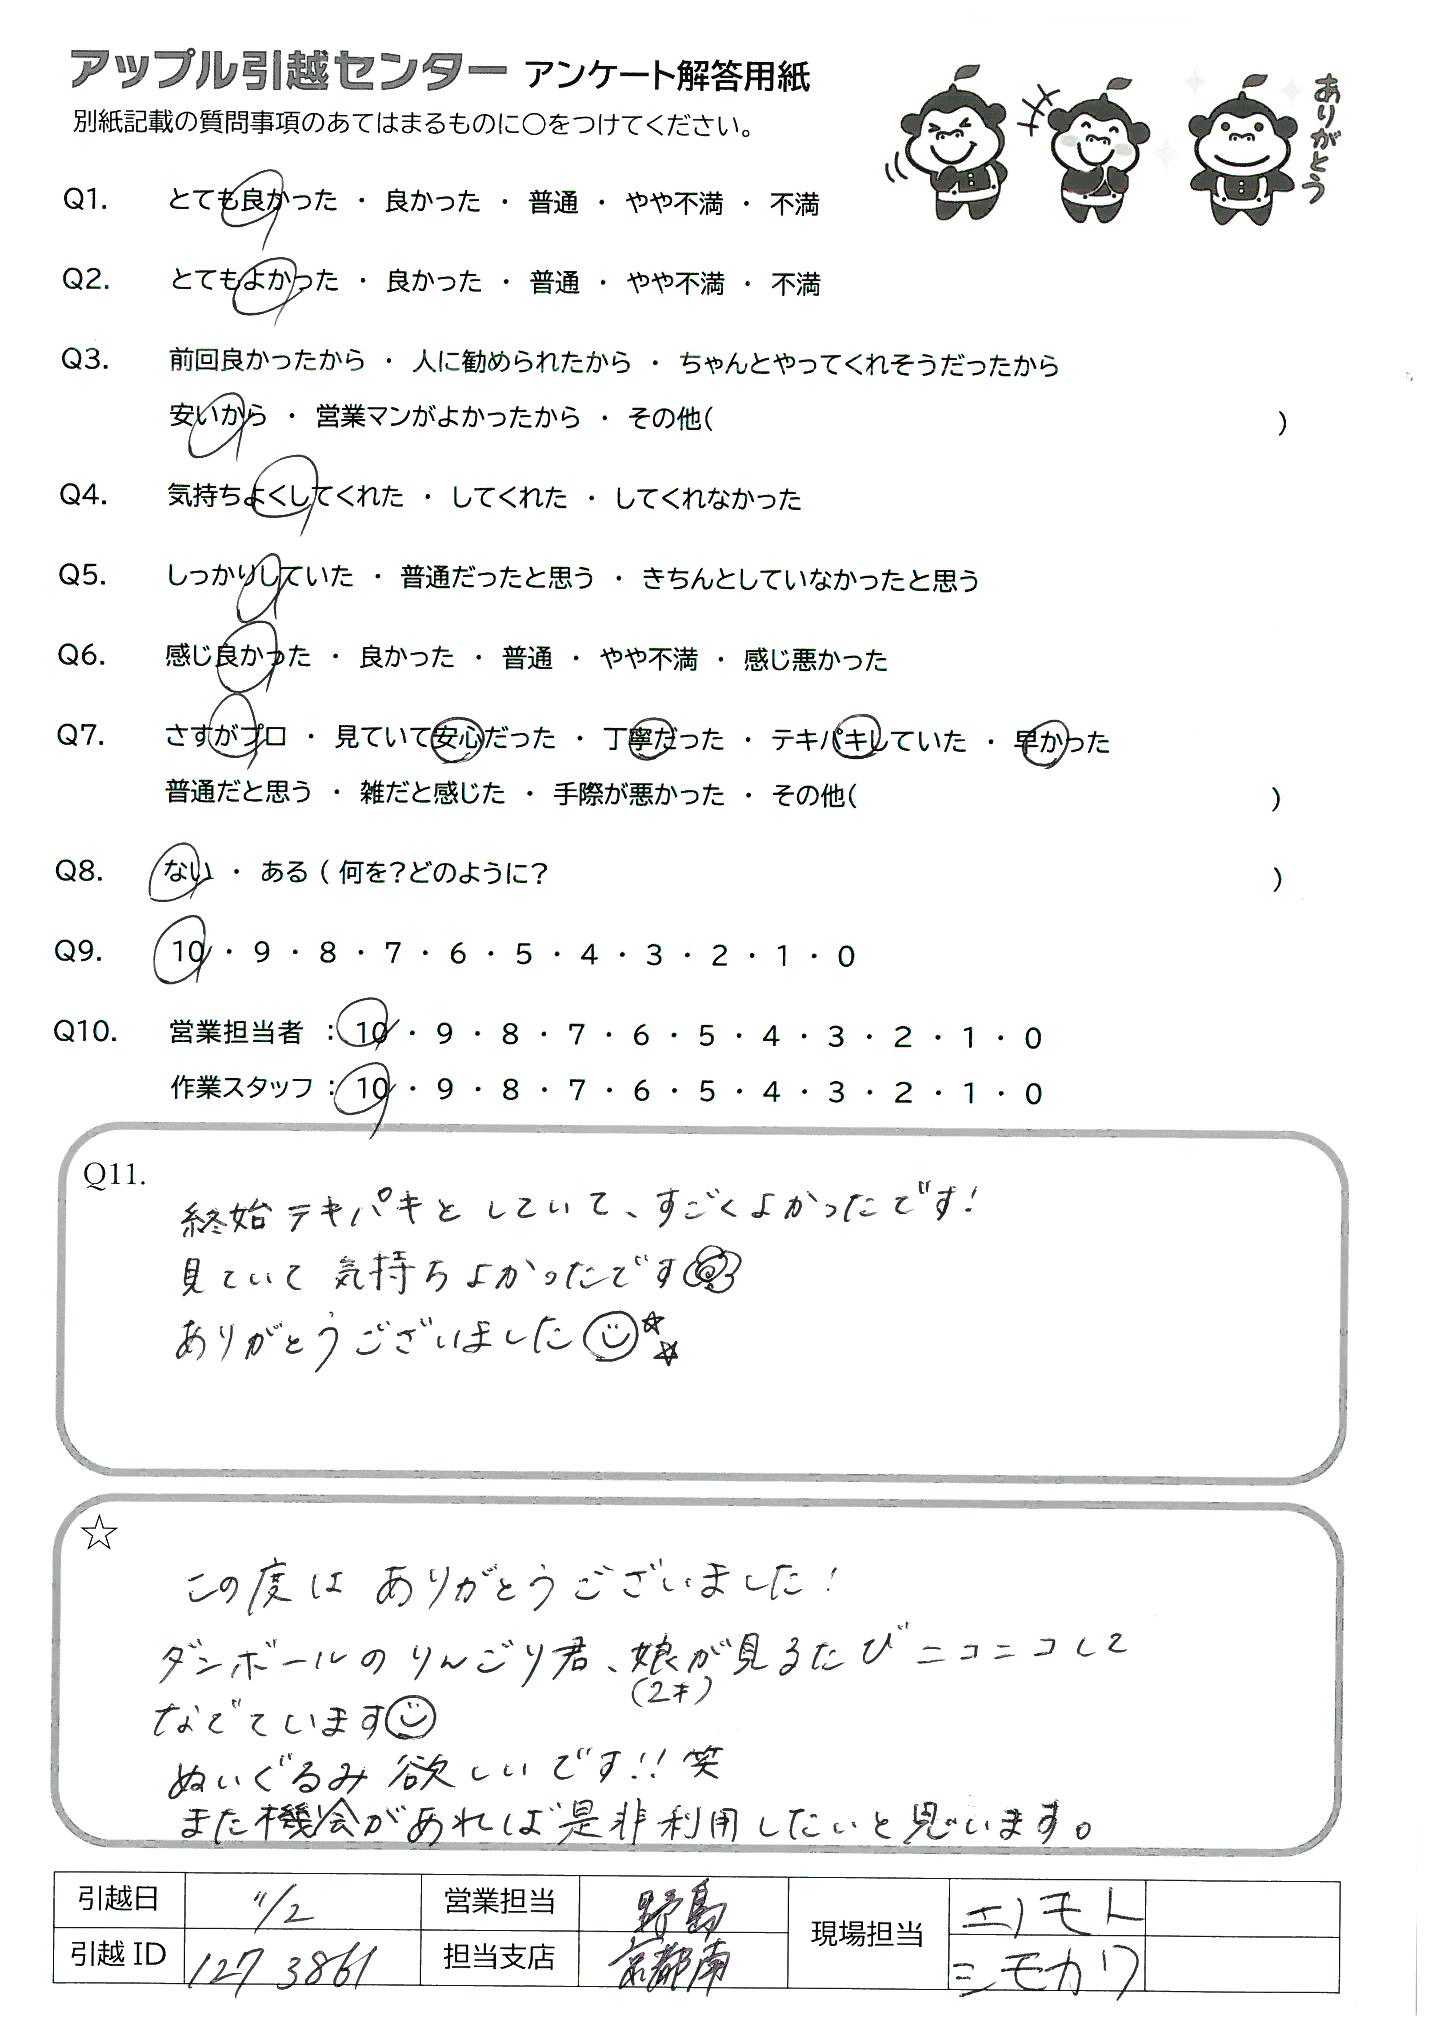 アップル引越センター アンケート解答用紙
ありがとう
別紙記載の質問事項のあてはまるものに○をつけてください。
Q1. とても良かった ・ 良かった ・ 普通 ・ やや不満 ・ 不満
Q2. とてもよかった ・ 良かった ・ 普通 ・ やや不満 ・ 不満
Q3. 前回良かったから ・ 人に勧められたから ・ ちゃんとやってくれそうだったから
安いから ・ 営業マンがよかったから ・ その他( )
Q4. 気持ちよくしてくれた ・ してくれた ・ してくれなかった
Q5. しっかりしていた ・ 普通だったと思う ・ きちんとしていなかったと思う
Q6. 感じ良かった ・ 良かった ・ 普通 ・ やや不満 ・ 感じ悪かった
Q7. さすがプロ ・ 見ていて安心だった ・ 丁寧だった ・ テキパキしていた ・ 早かった
普通だと思う ・ 雑だと感じた ・ 手際が悪かった ・ その他( )
Q8. ない ・ ある ( 何を?どのように? )
Q9. 10 ・ 9 ・ 8 ・ 7 ・ 6 ・ 5 ・ 4 ・ 3 ・ 2 ・ 1 ・ 0
Q10. 営業担当者 : 10 ・ 9 ・ 8 ・ 7 ・ 6 ・ 5 ・ 4 ・ 3 ・ 2 ・ 1 ・ 0
作業スタッフ : 10 ・ 9 ・ 8 ・ 7 ・ 6 ・ 5 ・ 4 ・ 3 ・ 2 ・ 1 ・ 0
Q11.
終始テキパキとしていて、すごくよかったです!
見ていて気持ちよかったです
ありがとうございました
☆
この度は ありがとうございました!
ダンボールのりんごり君、娘が見るたびニコニコして
(2才)
なでています
ぬいぐるみ欲しいです!! 笑
また機会があれば是非利用したいと思います。
引越日 11/2 営業担当 野島 現場担当 エノモト
引越ID 1273861 担当支店 京都南 シモカワ